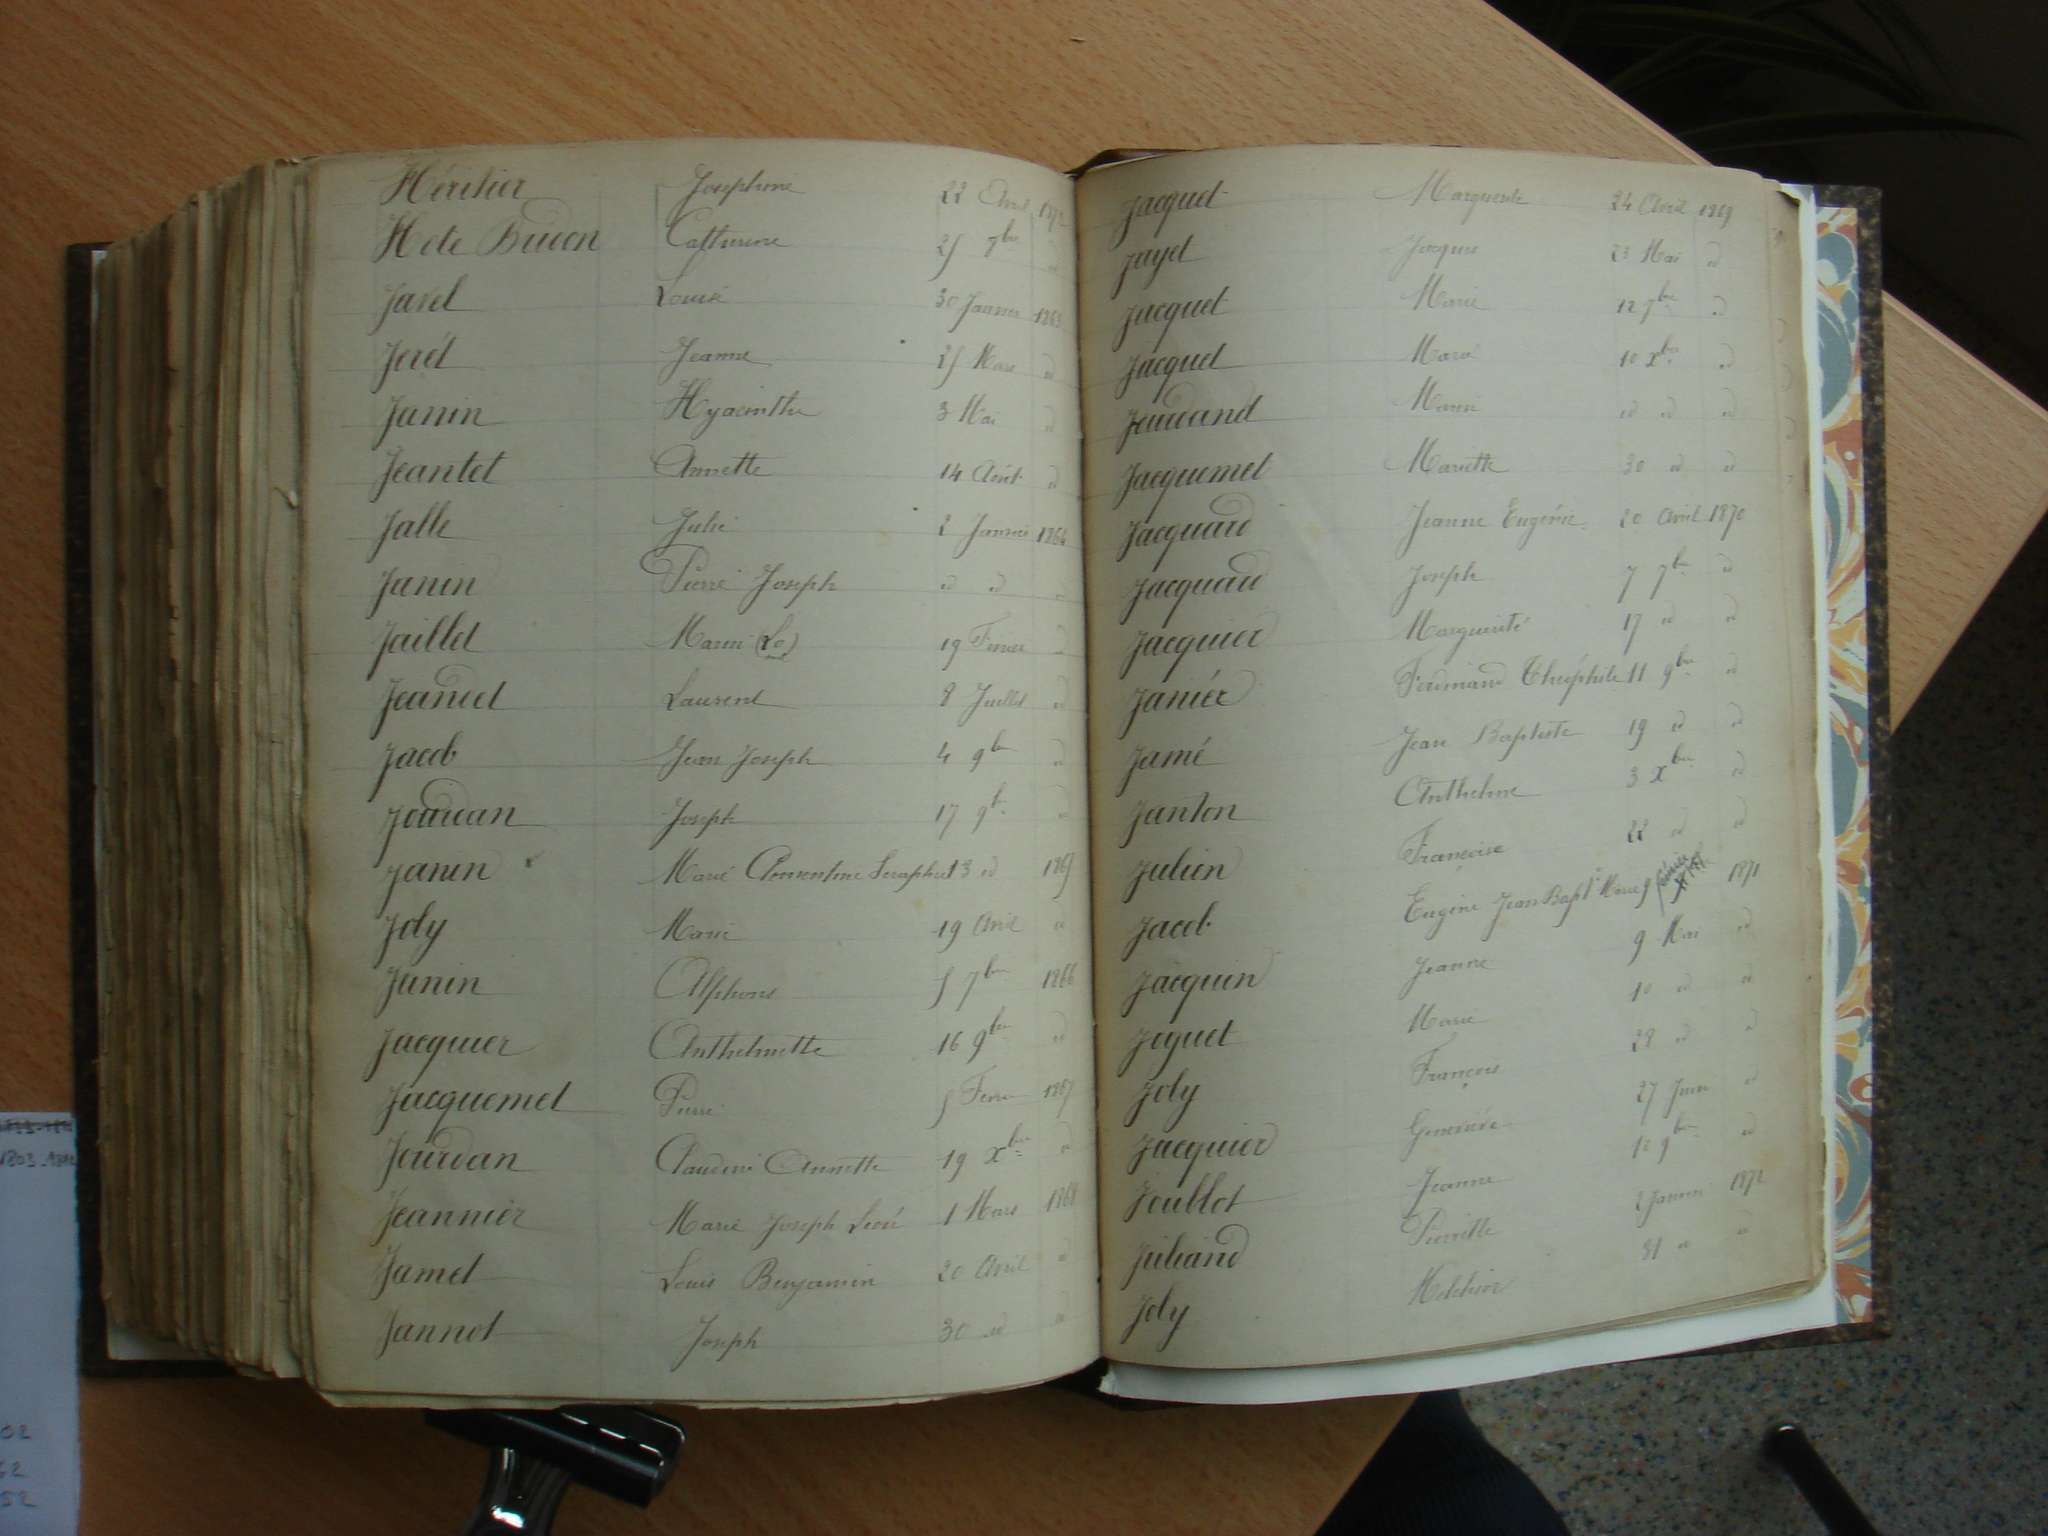 Héritier Josephine 22 Avril 1872
H de Buion Catherine 25 7bre id
Javel Louise 30 Janvier 1863
Jerét Jeanne 25 Mars id
Janin Hyacinthe 3 Mai id
Jeantet Annette 14 Août id
Jalle Julie 2 Janvier 1864
Janin Pierre Joseph id id id
Jaillet Marie (Lo) 19 Fevrier id
Jeancel Laurent 8 Juillet id
Jacob Jean Joseph 4 9bre id
Jourdan Joseph 17 9b. id
Janin Marie Clementine Seraphie 13 id 1865
Joly Marie 19 Avril id
Janin Alphons 5 7bre 1866
Jacquier Anthelmette 16 9bre id
Jacquemet Pierre 5 Fevrier 1867
Jourdan Claudine Annette 19 Xbre id
Jeannier Marie Joseph Léon 1 Mars 1868
Jamet Louis Benjamin 20 Avril id
Jannot Joseph 30 id id
Jacquet Marguerite 24 Avril 1869
Jayet Jacques 23 Mai id
Jacquet Marie 12 7bre id
Jacquet Marie 10 Xbre id
Marie id id id
Jacquemet Mariette 30 id id
Jacquard Jeanne Eugénie 20 Avril 1870
Jacquard Joseph 7 7b. id
Jacquier Marguerite 17 id id
Janiér Ferdinand Théophile 11 9bre id
Jamé Jean Baptiste 19 id id
Janton Anthelme 3 Xbre id
Julien Françoise 22 id id
Jacob Eugène Jean Bapte Marie 9 1871
Jacquin Jeanne 9 Mai id
Joguet Marie 10 id id
Joly François 28 id id
Jacquier Genevieve 27 Juin id
Joublot Jeanne 12 9bre id
Juliand Pierrette 2 Janvier 1872
Joly Melchior 31 id id
1803-18
02
62
52